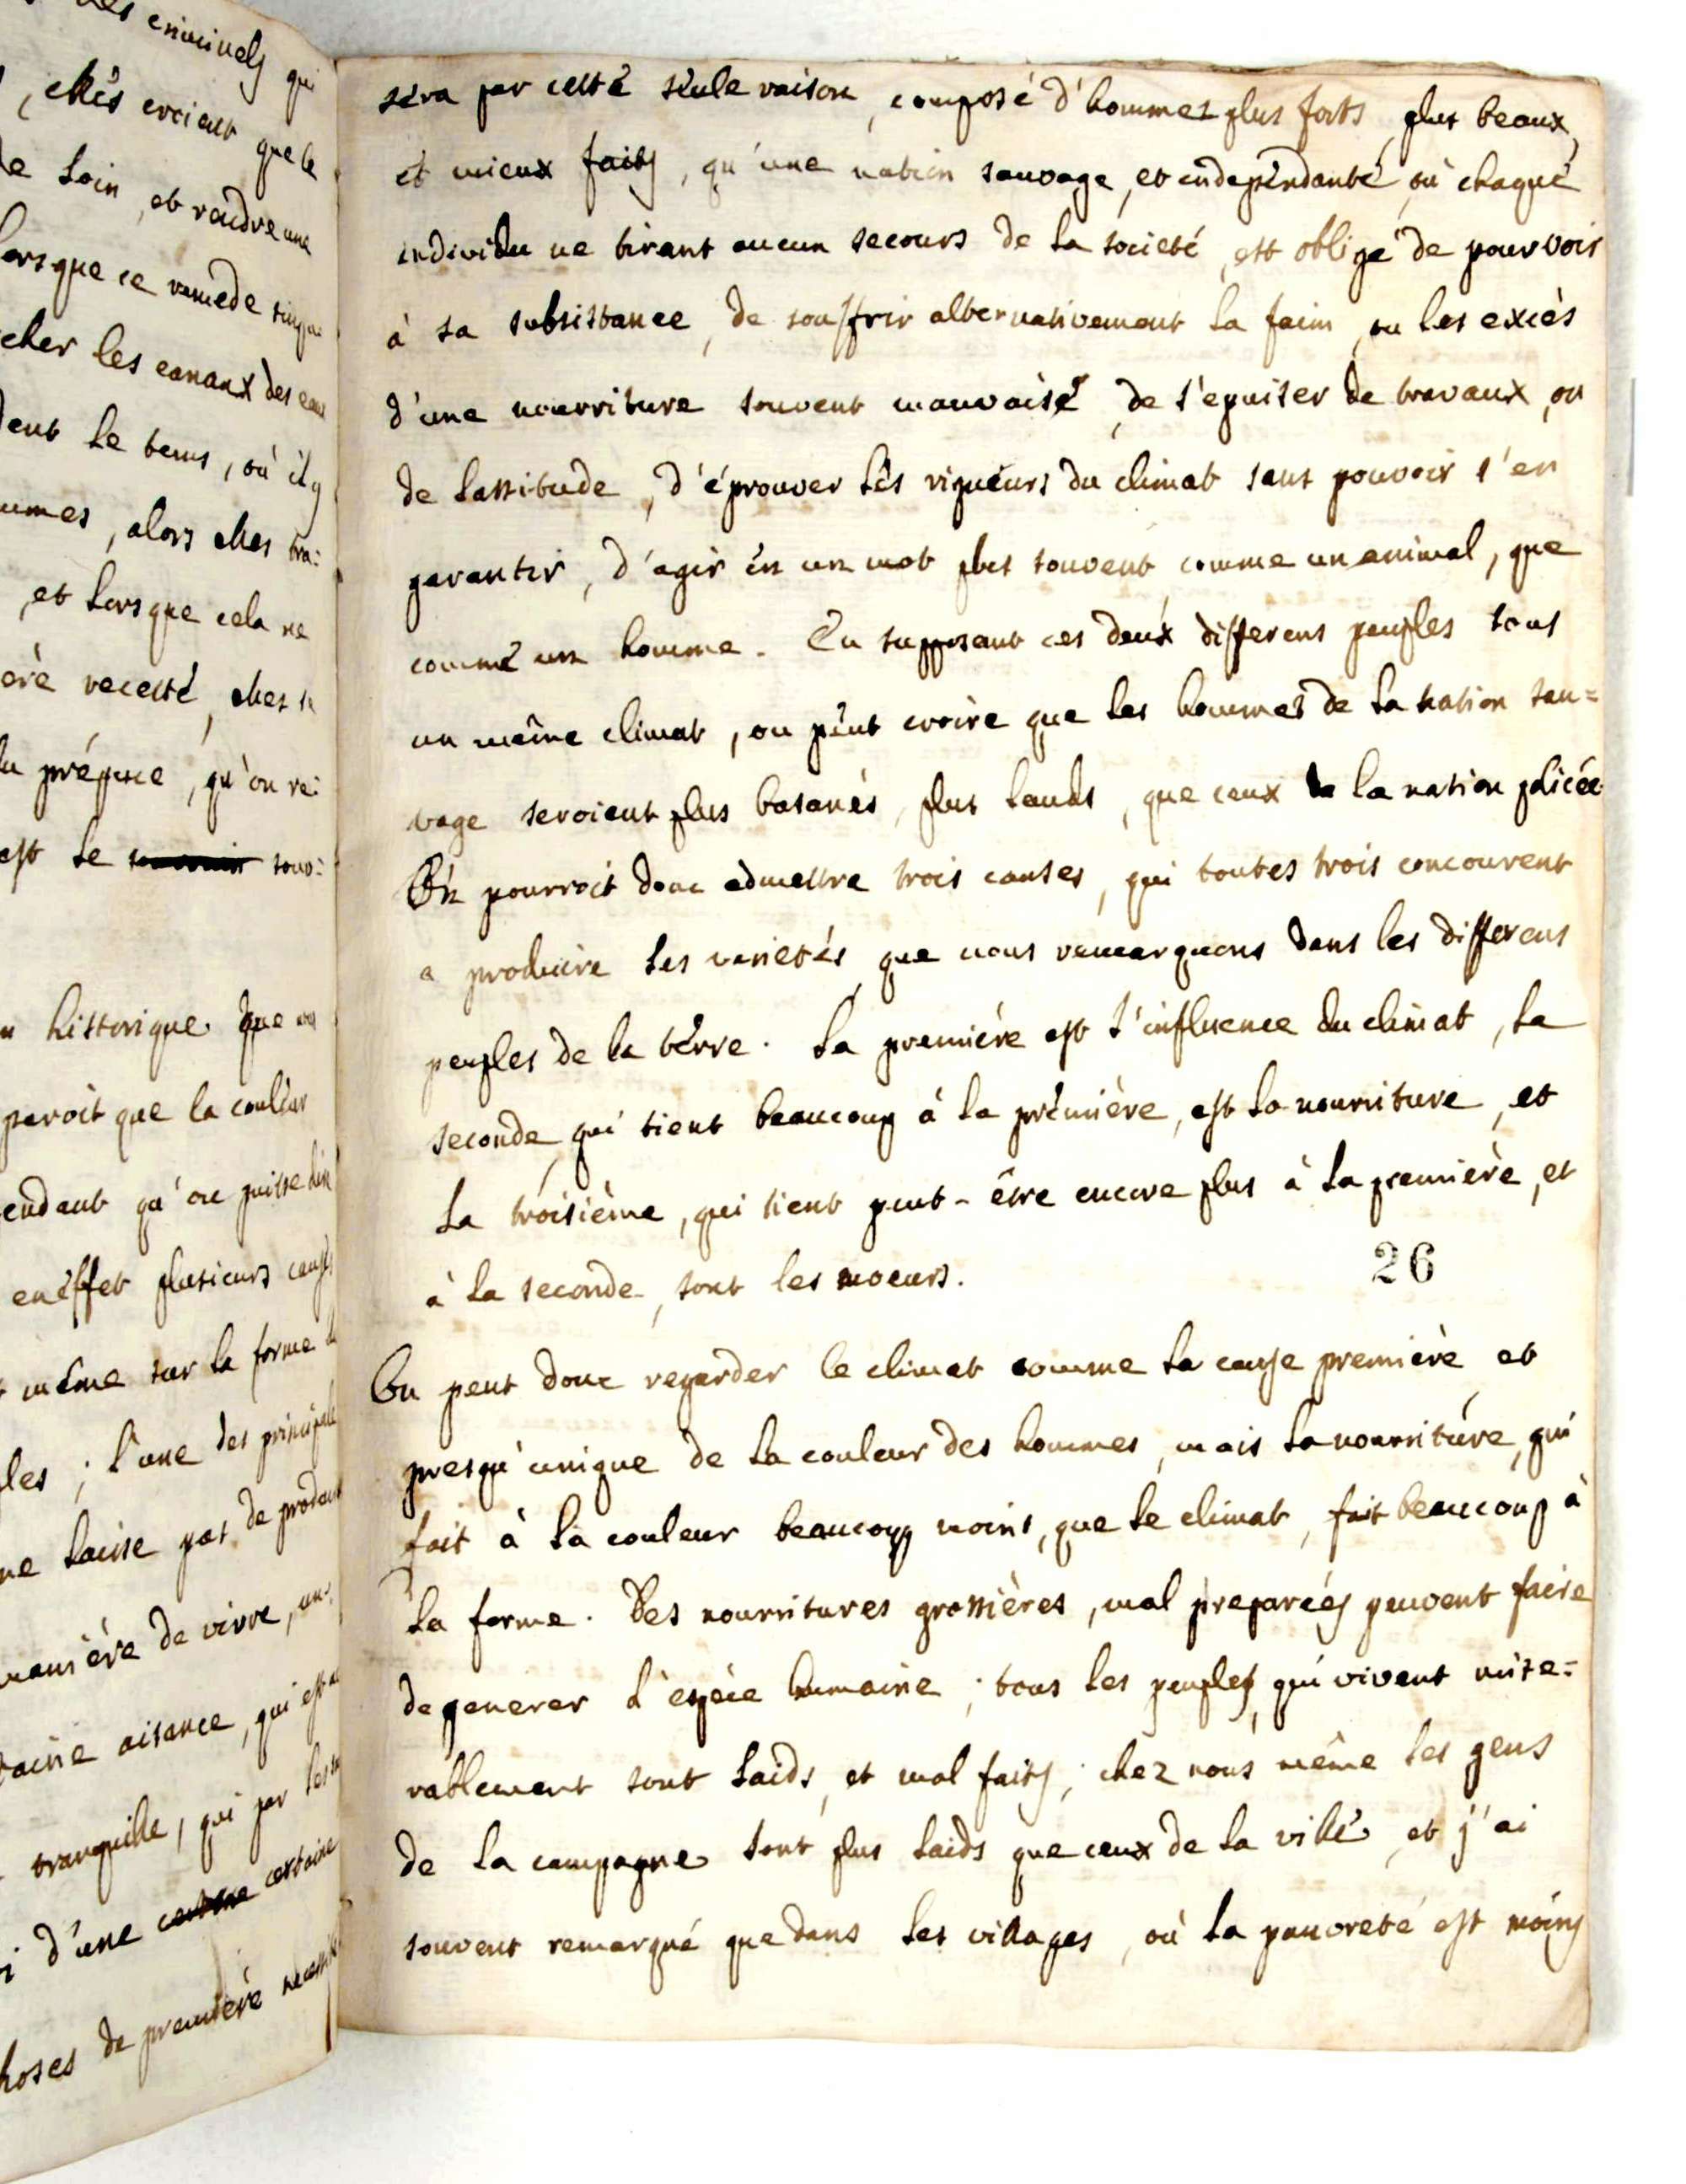 les criminels qui
, elles croient que le
de soin, et rendre une
lorsque ce remede
cher les canaux des eaux
dent le tems, où il y
mmes, alors elles tra=
, et lorsque cela ne
ere recette, elles
du prépuce, qu'on re=
est le souv=
historique que
paroit que la couleur
endant qu'on puisse dire
en éffet plusieurs causes
même sur la forme
les ; l'une des principales
ne laisse pas de produire
manière de vivre, un=
taine aisance, qui est
tranquille, qui par
d'une certaine
hoses de première necessité
séra par cette séule raison, composé d'hommes plus forts, plus beaux,
et mieux faits, qu'une nation sauvage, et indépéndante, où chaque
individu ne tirant aucun secours de la societé, est obligé de pourvoir
à sa subsistance, de souffrir alternativement la faim, ou les excès
d'une nourriture souvent mauvaise, de s'epuiser de travaux, ou
de lassitude, d'éprouver lés rigueurs du climat sans pouvoir s'en
garantir, d'agir én un mot plus souvent comme un animal, que
comme un homme. En supposant ces deux differens peuples sous
un même climat, on péut croire que les hommes de la nation sau=
vage seroient plus basanés, plus lauds, que ceux de la nation policée.
On pourroit donc admettre trois causes, qui toutes trois concourent
a produire les varietés, que nous remarquons dans les differens
peuples de la térre. La première est l'influence du climat, la
seconde, qui tient beaucoup à la première, est la nourriture, et
la troisième, qui tient peut-être encore plus à la première, et
à la seconde, sont les moeurs.
26
On peut donc regarder le climat comme la cause première et
presqu'unique de la couleur des hommes, mais la nourriture, qui
fait à la couleur beaucoup moins, que le climat, fait beaucoup à
la forme. Des nourritures grossières, mal preparées peuvent faire
degenerer l'espèce humaine ; tous les peuples, qui vivent mise=
rablement sont laids, et mal faits ; chez nous même les gens
de la campagne sont plus laids que ceux de la ville, et j'ai
souvent remarqué que dans les villages, où la pauvreté est moins